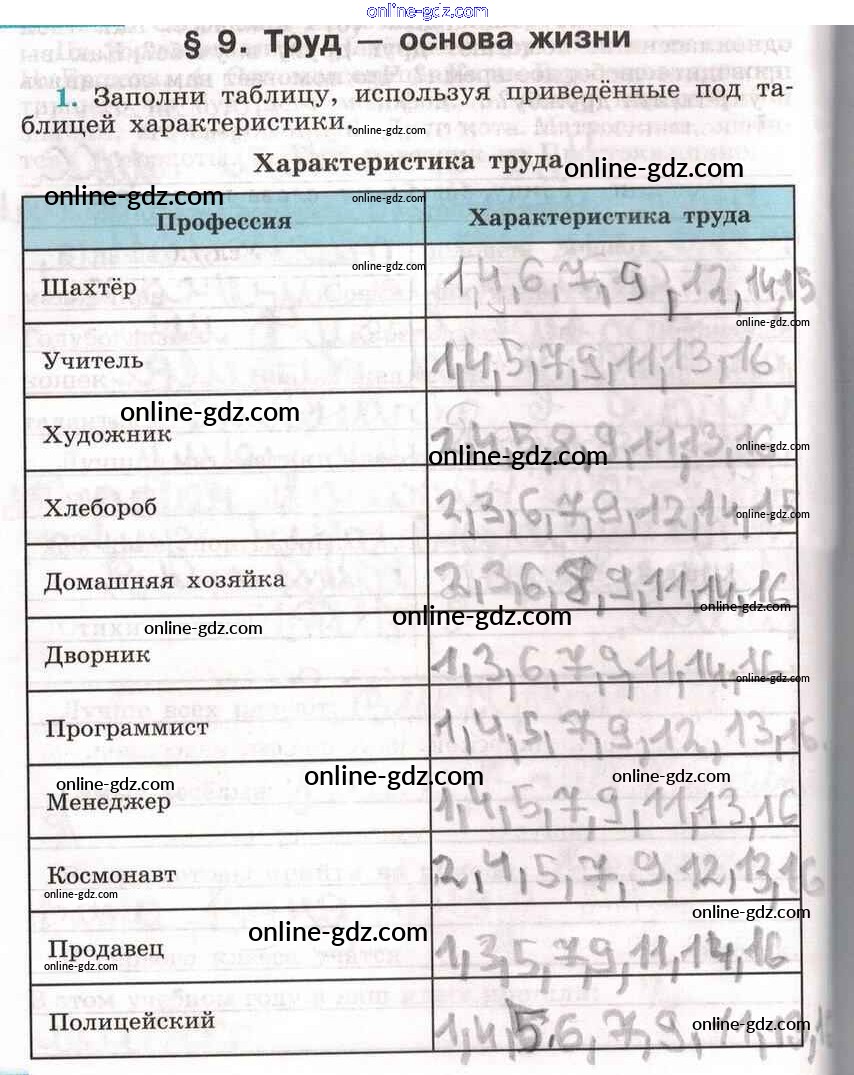 online-gdz.com
§ 9. Труд — основа жизни
1. Заполни таблицу, используя приведённые под та-
блицей характеристики.
online-gdz.com
Характеристика труда
online-gdz.com
online-gdz.com
online-gdz.com
Профессия Характеристика труда
online-gdz.com
Шахтёр 1,4,6,7,9,12,14,15
online-gdz.com
Учитель 1,4,5,7,9,11,13,16
online-gdz.com
Художник 2,4,5,8,9,11,13,16
online-gdz.com
online-gdz.com
Хлебороб 2,3,6,7,9,12,14,15
online-gdz.com
Домашняя хозяйка 2,3,6,8,9,11,14,16
online-gdz.com
online-gdz.com
online-gdz.com
Дворник 1,3,6,7,9,11,14,16
online-gdz.com
Программист 1,4,5,7,9,12,13,16.
online-gdz.com
online-gdz.com
online-gdz.com
Менеджер 1,4,5,7,9,11,13,16
Космонавт 2,4,5,7,9,12,13,16
online-gdz.com
online-gdz.com
online-gdz.com
Продавец 1,3,5,7,9,11,14,16
online-gdz.com
Полицейский 1,4,5.6,7,9,11,13,
online-gdz.com